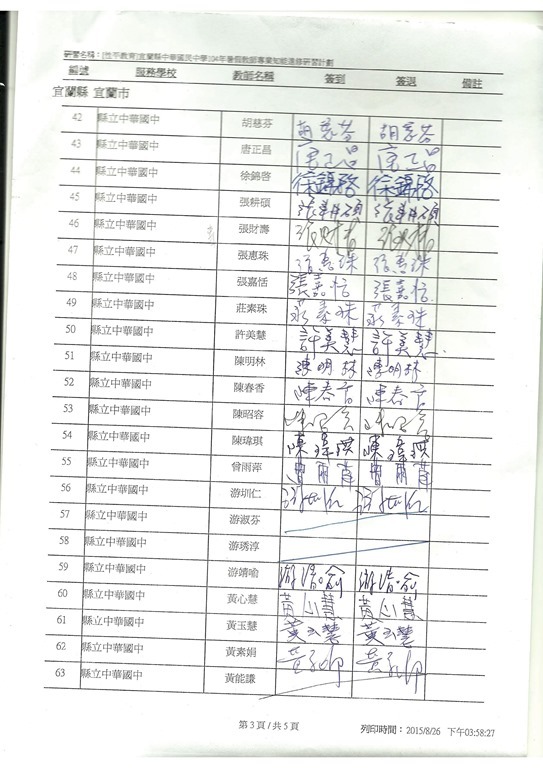 研習名稱：[性平教育]宜蘭縣中華國民中學104年暑假教師專業知能進修研習計劃
編號 服務學校 教師名稱 簽到 簽退 備註
宜蘭縣 宜蘭市
42 縣立中華國中 胡慈芬 胡慈芬 胡慈芬
43 縣立中華國中 唐正昌 唐正昌 唐正昌
44 縣立中華國中 徐錦啓 徐錦啓 徐錦啓
45 縣立中華國中 張耕碩 張耕碩 張耕碩
46 縣立中華國中 張財壽 張財壽 張財壽
47 縣立中華國中 張惠珠 張惠珠 張惠珠
48 縣立中華國中 張嘉恬 張嘉恬 張嘉恬
49 縣立中華國中 莊素珠 莊素珠 莊素珠
50 縣立中華國中 許美慧 許美慧 許美慧
51 縣立中華國中 陳明林 陳明林 陳明林
52 縣立中華國中 陳春香 陳春香 陳春香
53 縣立中華國中 陳昭容
54 縣立中華國中 陳瑋琪 陳瑋琪 陳瑋琪
55 縣立中華國中 曾雨萍 曾雨萍 曾雨萍
56 縣立中華國中 游圳仁 游圳仁 游圳仁
57 縣立中華國中 游淑芬
58 縣立中華國中 游琇淳
59 縣立中華國中 游靖喻 游靖喻 游靖喻
60 縣立中華國中 黃心慧 黃心慧 黃心慧
61 縣立中華國中 黃玉慧 黃玉慧 黃玉慧
62 縣立中華國中 黃素娟
63 縣立中華國中 黃能謙
第 3 頁 / 共 5 頁 列印時間： 2015/8/26 下午03:58:27